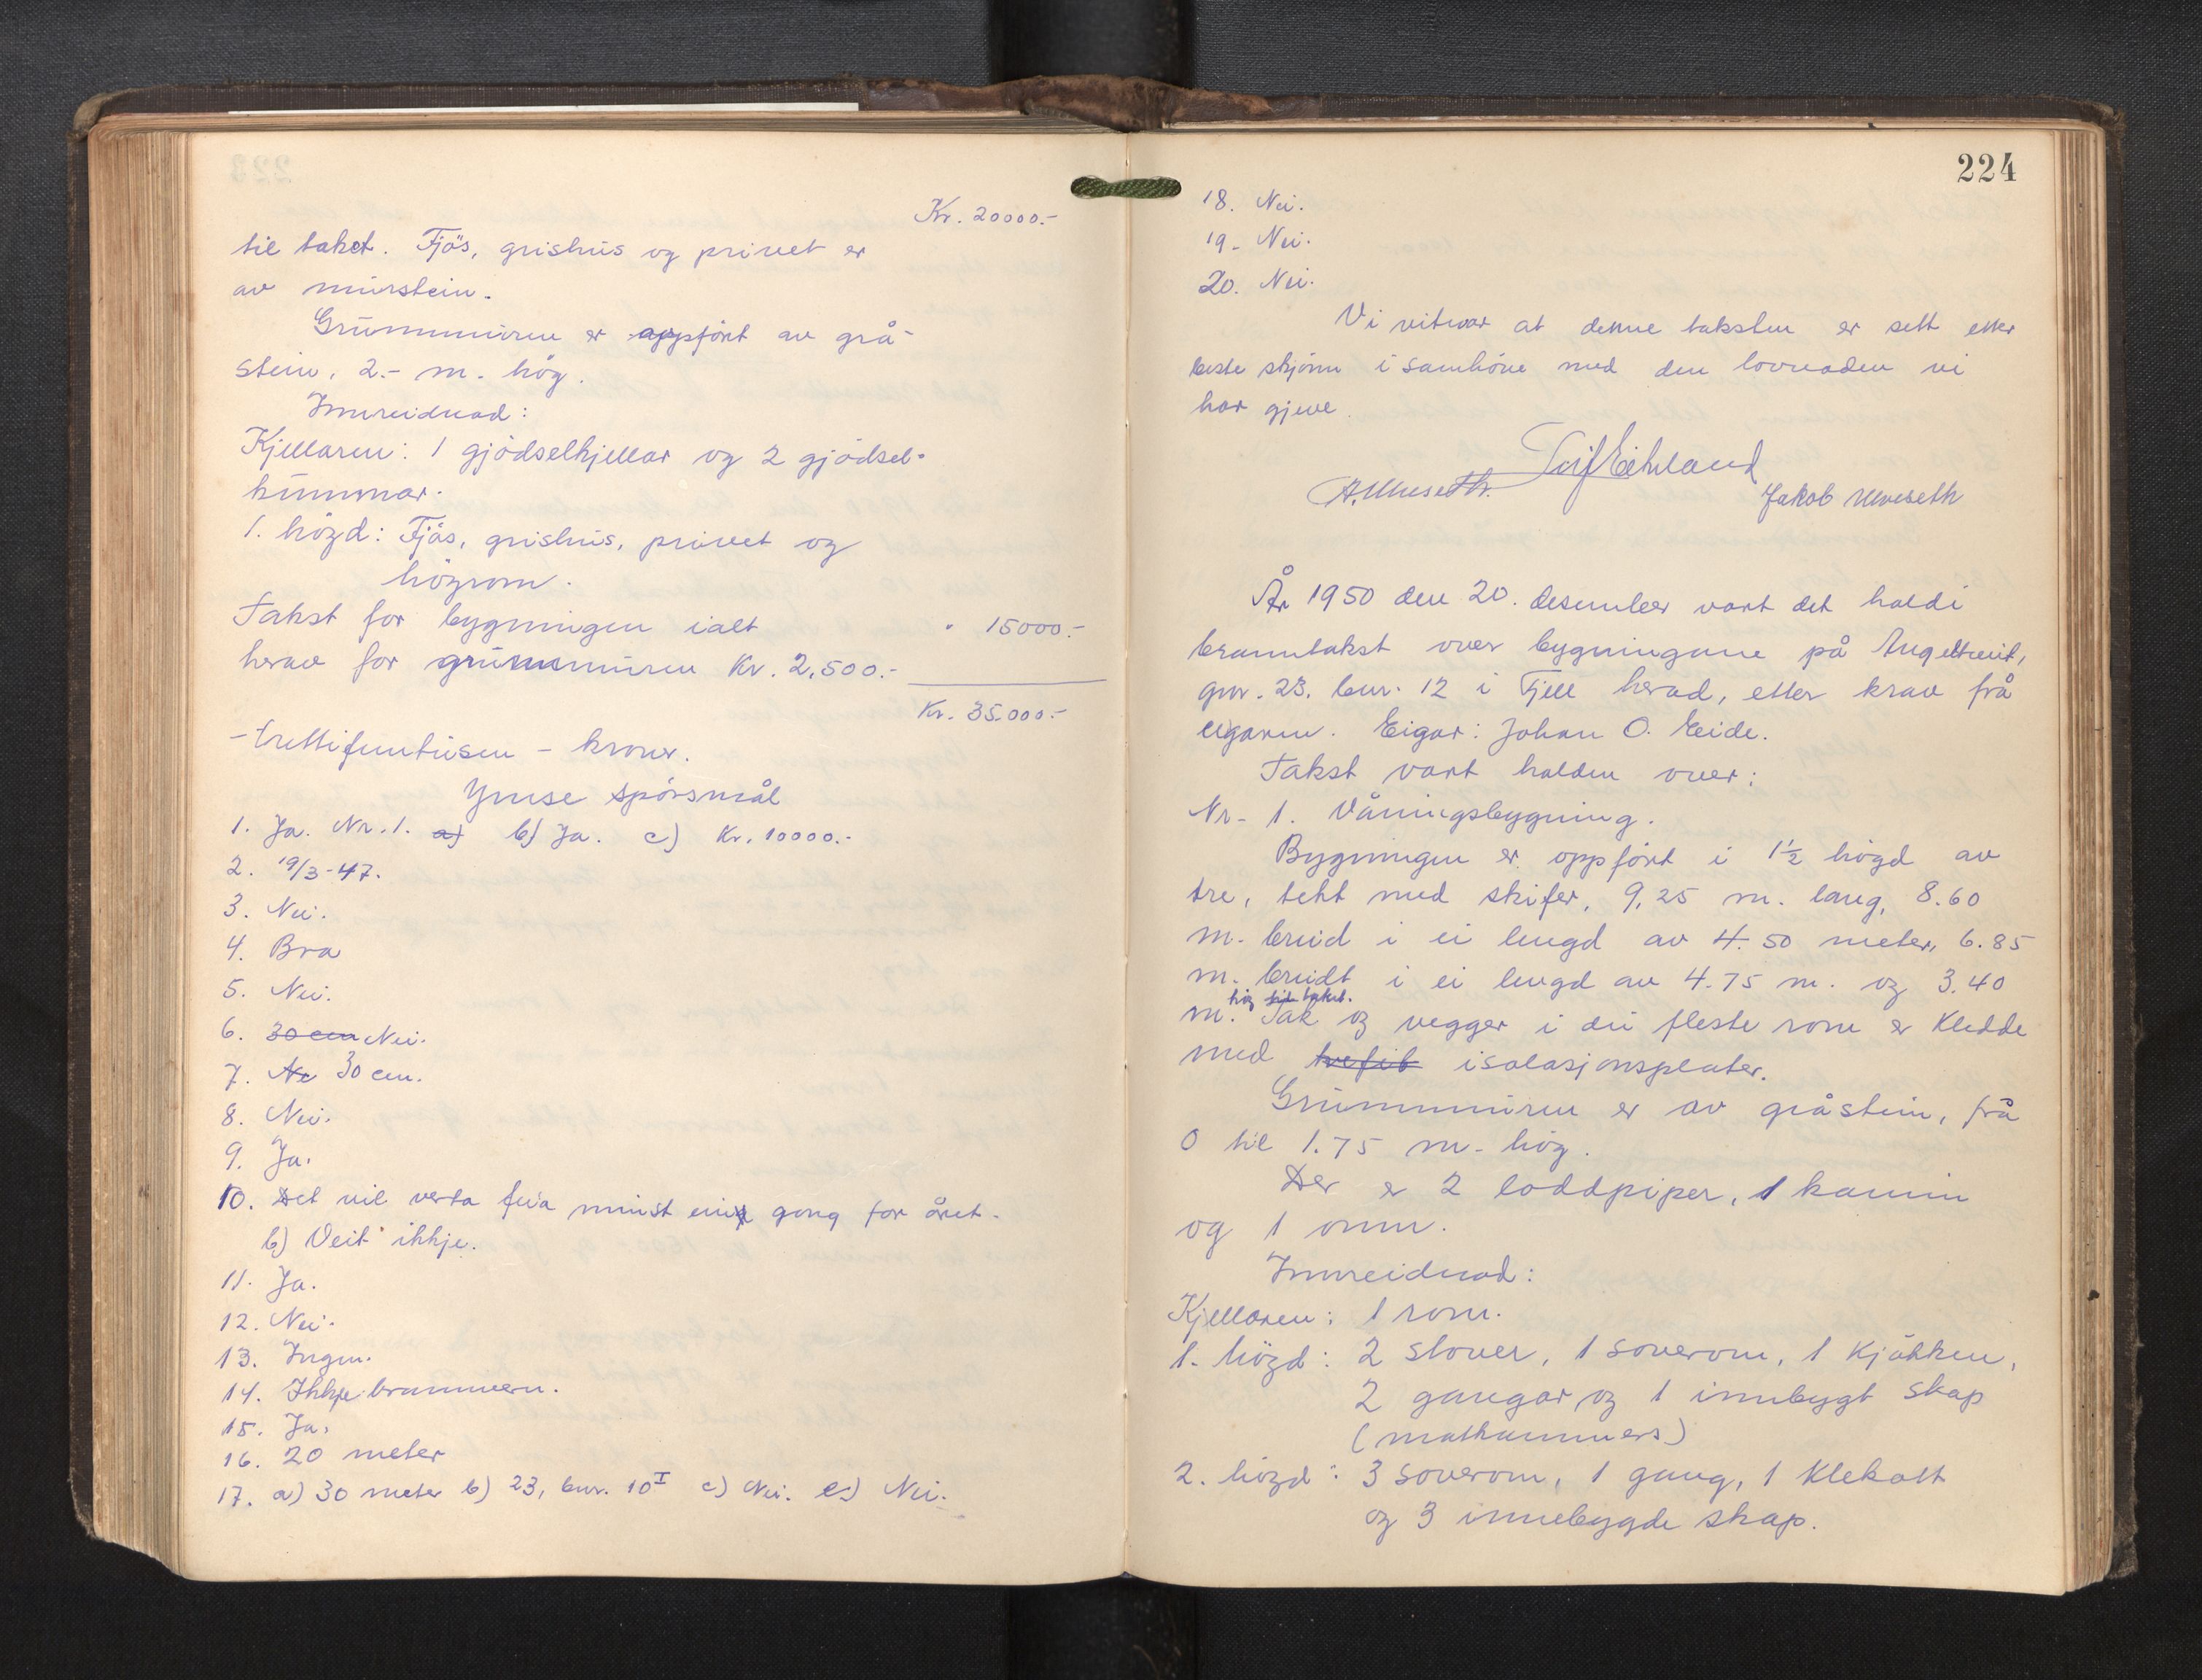 Kr. 20000.-
til taket. Fjös, grishus og privet er
av murstein.
Grunnmuren er oppfört av grå-
stein, 2.- m. hög.
Innreidnad:
Kjellaren: 1 gjödselkjellar og 2 gjödsel-
kummar.
1. högd: Fjös, grishus, privet og
högrom.
Takst for bygningen ialt " 15000.-
herav for grunnmuren Kr. 2.500.-
Kr. 35.000.-
- trettifemtusen - kroner.
Ymse spörsmål
1. Ja. Nr. 1. a) b) Ja. c) Kr. 10000.-
2. 19/3-47.
3. Nei.
4. Bra
5. Nei.
6. 30 cm Nei.
7. Ne 30 cm.
8. Nei.
9. Ja.
10. Det vil verta feia minst ein gong for året.
b) Veit ikkje.
11. Ja.
12. Nei.
13. Ingen.
14. Ikkje brannvern.
15. Ja.
16. 20 meter
17. a) 30 meter b) 23, bnr. 10 I c) Nei. e) Nei.
224
18. Nei.
19. Nei.
20. Nei.
Vi vitnar at denne taksten er sett etter
beste skjönn i samhöve med den lovnaden vi
har gjeve.
Leif Eikeland
A. Ulveseth. Jakob Ulveseth
År 1950 den 20. desember vart det haldi
branntakst over bygningane på Angeltveit,
gnr. 23. bnr. 12 i Fjell herad, etter krav frå
eigaren. Eigar: Johan O. Eide.
Takst vart halden over:
Nr. 1. Våningsbygning.
Bygningen er oppfört i 1½ högd av
tre, tekt med skifer, 9,25 m. lang, 8.60
m. breid i ei lengd av 4.50 meter, 6.85
m. breidt i ei lengd av 4.75 m. og 3.40
hög til taket.
m. Tak og vegger i dei fleste rom er kledde
med trefib isolasjonsplater.
Grunnmuren er av gråstein, frå
0 til 1.75 m. hög.
Der er 2 loddpiper, 1 kamin
og 1 omn.
Innreidnad:
Kjellaren: 1 rom.
1. högd: 2 stover, 1 soverom, 1 kjökken,
2 gangar og 1 innbygt skap
(matkammers)
2. högd: 3 soverom, 1 gang, 1 klekott
og 3 innebygde skap.